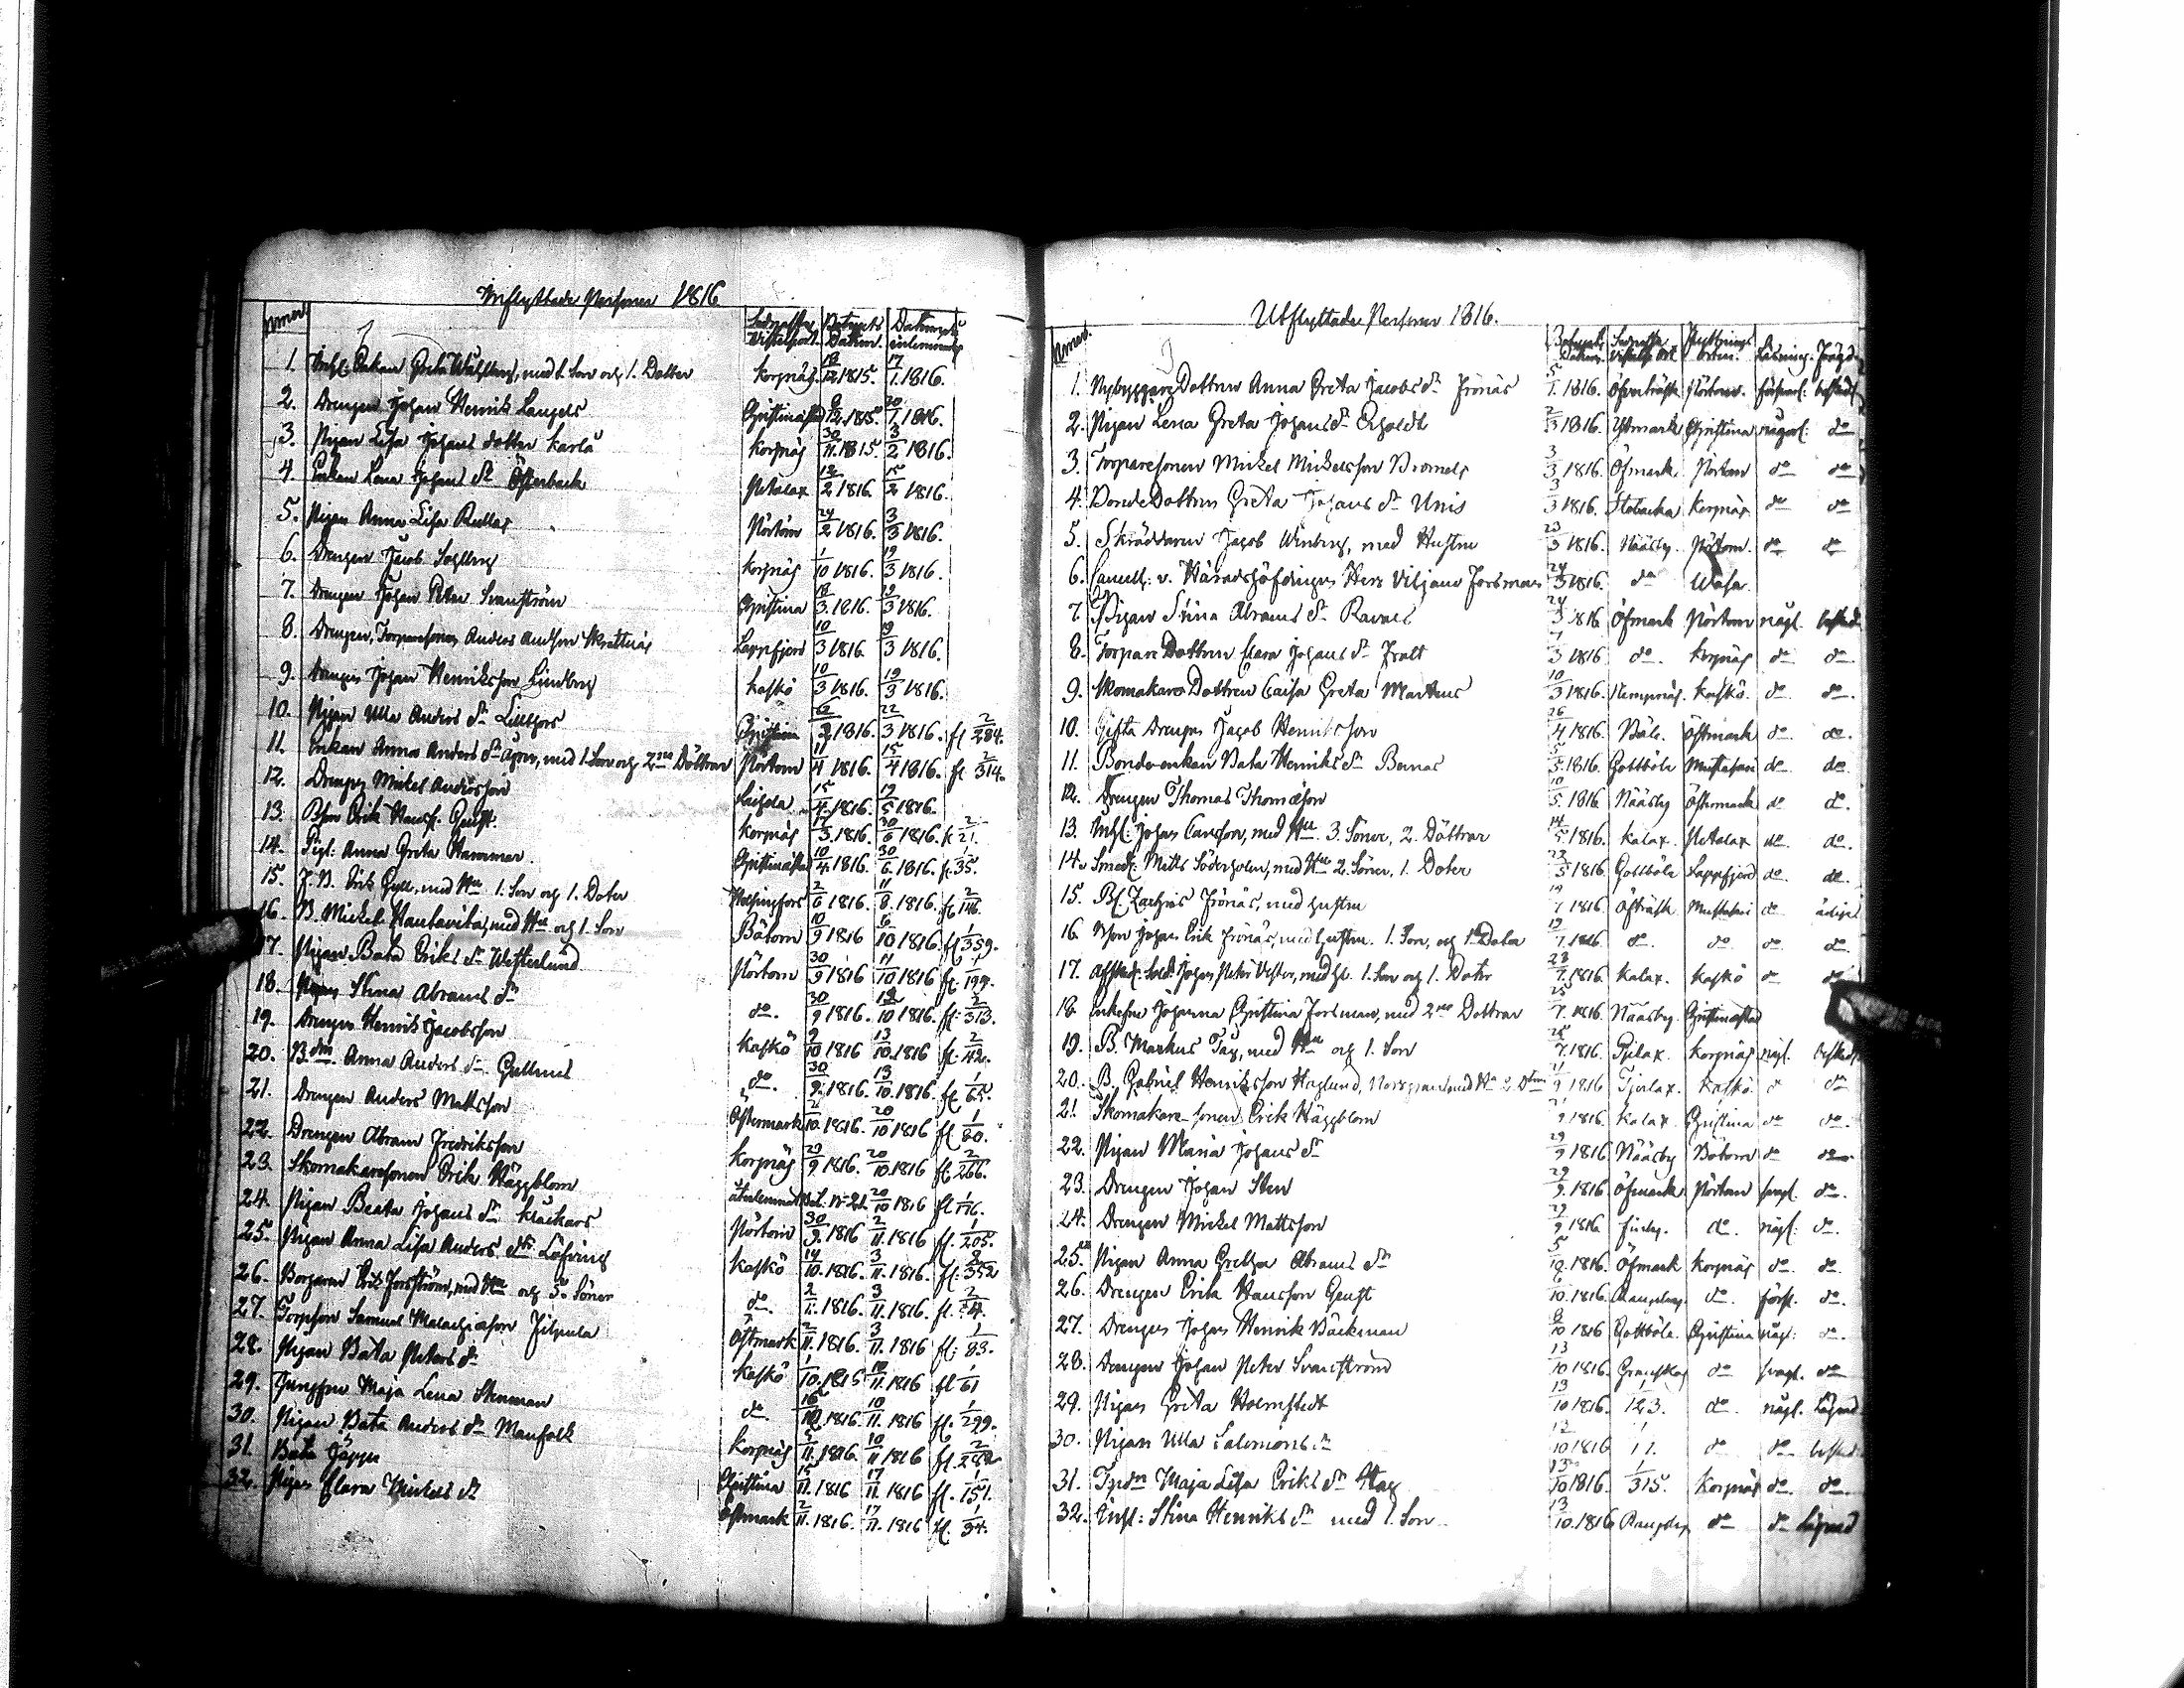 Inflyttade Personer 1816
1. Inhs: Enkan Greta Wahlberg, med 1. Son och 1. Dotter Korsnäs 18/12 1815. 17/1. 1816.
2. Drengen Johan Henrik Langels Christinæstad 8/12. 1815. 20/1 1816.
3. Pigan Lisa Johans dotter Karlå Korsnäs 30/11. 1815. 3/2 1816.
4. Enkan Lena Johans dr Österback Petalax 12/2 1816. 15/2 1816.
5. Pigan Anna Lisa Rullax Pörtom 24/2 1816. 3/3 1816.
6. Drengen Jacob Sahlberg Korsnäs 1/10 1816. 19/3 1816.
7. Drengen Johan Peter Svanström Christina 18/3. 1816. 19/3 1816.
8. Drengen, Torparesonen Anders Andsson Skrattnäs Lappfjerd 10/3 1816. 19/3 1816.
9. Drengen Johan Henriksson Lindberg Kaskö 10/3 1816. 19/3 1816.
10. Pigan Ulla Anders dr Lillthors Christina 3. 1816. 22/3 1816. fl 2/284.
11. Enkan Anna Anders dr med 1 Son och 2ne Döttrar Pörtom 11/4 1816. 15/4 1816. fl. 2/314.
12. Drengen Mickel Andersson 15/4. 1816. 19/5 1816.
13. Erik Hansson Korsnäs 17/3. 1816. 30/6 1816. 2/21.
14. Pigl: Anna Greta Hammar Christinæstad 10/4. 1816. 30/6. 1816. fl. 35.
15. Erik Gyll, med Hu 1. Son och 1. Doter Helsingfors 2/6 1816. 11/8. 1816. fl 2/146.
16. B. Mickel Hautaviita, med Hu och 1. Son Bötom 10/9 1816 6/10 1816. fl 1/359.
17. Pigan Beata Eriks dr Westerlund Pörtom 30/9 1816 11/10 1816 fl: 1/199.
18. Pigan Stina Abrams dr do. 30/9 1816. 12/10 1816. fl: 2/313.
19. Drengen Henrik Jacobsson Kaskö 9/10 1816 13/10. 1816 fl: 2/42.
20. Anna Anders dr. Gullmes do. 30/9. 1816. 13/10. 1816. fl. 1/65.
21. Drengen Anders Mattsson Östermark 2/10. 1816. 20/10 1816 fl 1/80.
22. Drengen Abram Fredriksson Korsnäs 29/9 1816. 20/10. 1816 fl 2/266.
23. Skomakaresonen Erik Häggblom återkommit Bet: No 21. 20/10 1816 fl 1/176.
24. Pigan Beata Johans dr Klåckars Pörtom 30/9. 1816 2/11. 1816 fl. 1/205.
25. Pigan Anna Lisa Anders dr Löfving Kaskö 14/10. 1816. 3/11. 1816. fl: 2/352
26. Borgaren Erik Forsström, med Hu och 5. Söner do. 2/11. 1816. 3/11. 1816. fl. 2/74.
27. Torpson Samuel Malachiasson Filpula Östmark 2/11. 1816. 3/11. 1816 fl: 1/83.
28. Pigan Beata Peters dr Kaskö 1/10. 1816 10/11. 1816 fl 1/61
29. Jungfrun Maja Lena Stenman do. 16/10. 1816. 10/11. 1816 fl. 1/299.
30. Pigan Beata Anders dr Manfolk Korsnäs 5/11. 1816. 10/11 1816 fl. 2/282
31. Beata Jåppe Christina 15/11. 1816 17/11. 1816 fl. 1/151.
32. Pigan Clara Mickels dr Östmark 2/11. 1816. 17/11. 1816 fl. 1/34.
Utflyttade Personer 1816.
1. Nybyggare Dottren Anna Greta Jacobs dr Frönäs 5/1. 1816. Öfverträsk Pörtom.
2. Pigan Lena Greta Johans dr Erholdt 2/3 1816. Yttermark Christina do
3. Torparesonen Mickel Mickelsson Bromels 3/3 1816. Öfmark Pörtom do do
4. Bonde Dottren Greta Johans dr Unis 3/3 1816. Stobacka Korsnäs do do
5. Skräddaren Jacob Winberg, med Hustru 23/3 1816. Nääsby. Pörtom. do do
6. Cancell: v. Häradshöfdingen Herr Viljam Forsman 24/3 1816. do Wasa
7. Pigan Stina Abrams dr Ravals 24/3 1816 Öfmark Pörtom någl.
8. Torpare Dottren Clara Johans dr Fralt 7/3 1816 do. Korsnäs do do
9. Skomakare Dottren Caisa Greta Martens 10/3 1816. Kempnäs. Kaskö. do do.
10. Gifta Drengen Jacob Henriksson 26/4 1816. Böle. Östmark do. do.
11. Bonde-enkan Beata Henriks dr Bernas 5/5. 1816. Gottböle Mustasari do do
12. Drengen Thomas Thomasson 10/5. 1816 Nääsby Östermark do do.
13. Inhs: Johan Carlsson, med Hu 3. Söner, 2. Döttrar 14/5 1816. Kalax. Petalax do. do.
14. Smed: Matts Söderholm, med Hu 2. Söner, 1. Doter 23/5 1816 Gottböle Lappfjerd do. do.
15. Bf. Zachris Frönäs, med hustru 19/7 1816 Öfträsk Mustasari do
16. Bson Johan Erik Frönäs, med hustru. 1. Son, och 1 Dotter 19/7. 1816 do. do do. do.
17. Afsked: Sold: Johan Peter Vester, med hu. 1. Son och 1. Doter 23/7. 1816 Kalax. Kaskö do do
18. Enkefru Johanna Christina Forsman, med 2ne Dottrar 25/7. 1816 Nääsby. Christinæstad
19. B. Markus Tax, med Hu och 1. Son 26/7. 1816. Pjelax. Korsnäs någl.
20. B. Gabriel Henriksson Haglund, Norrgrann med Hu 2 Dtrar 9 1816 Tjerlax. Kaskö do do
21. Skomakare-sonen Erik Häggblom 21/9 1816. Kalax Christina do do.
22. Pigan Maria Johans dr 29/9 1816 Nääsby Bötom do do
23. Drengen Johan Sten 29/9. 1816. Öfmark Pörtom svagl. do.
24. Drengen Mickel Mattsson 29/9 1816 Finby. do. någl: do.
25. Pigan Anna Gretha Abrams dr 5/10. 1816. Öfmark Korsnäs do. do.
26. Drengen Erik Hansson Genst 6/10. 1816. Rangsby. do. förs. do.
27. Drengen Johan Henrik Bäckman 8/10 1816 Gottböle. Christina någl: do.
28. Drengen Johan Peter Svanström 13/10 1816. Granskog do svagl. do
29. Pigan Greta Holmstedt 13/10 1816. 1/123. do. någl.
30. Pigan Ulla Salomons dr 12/10 1816 1/11. do do
31. Maja Lisa Eriks dr Stag 13/10 1816. 1/315. Korsnäs do. do.
32. Inhs: Stina Henriks dr med 1. Son 13/10. 1816 Rangsby do do